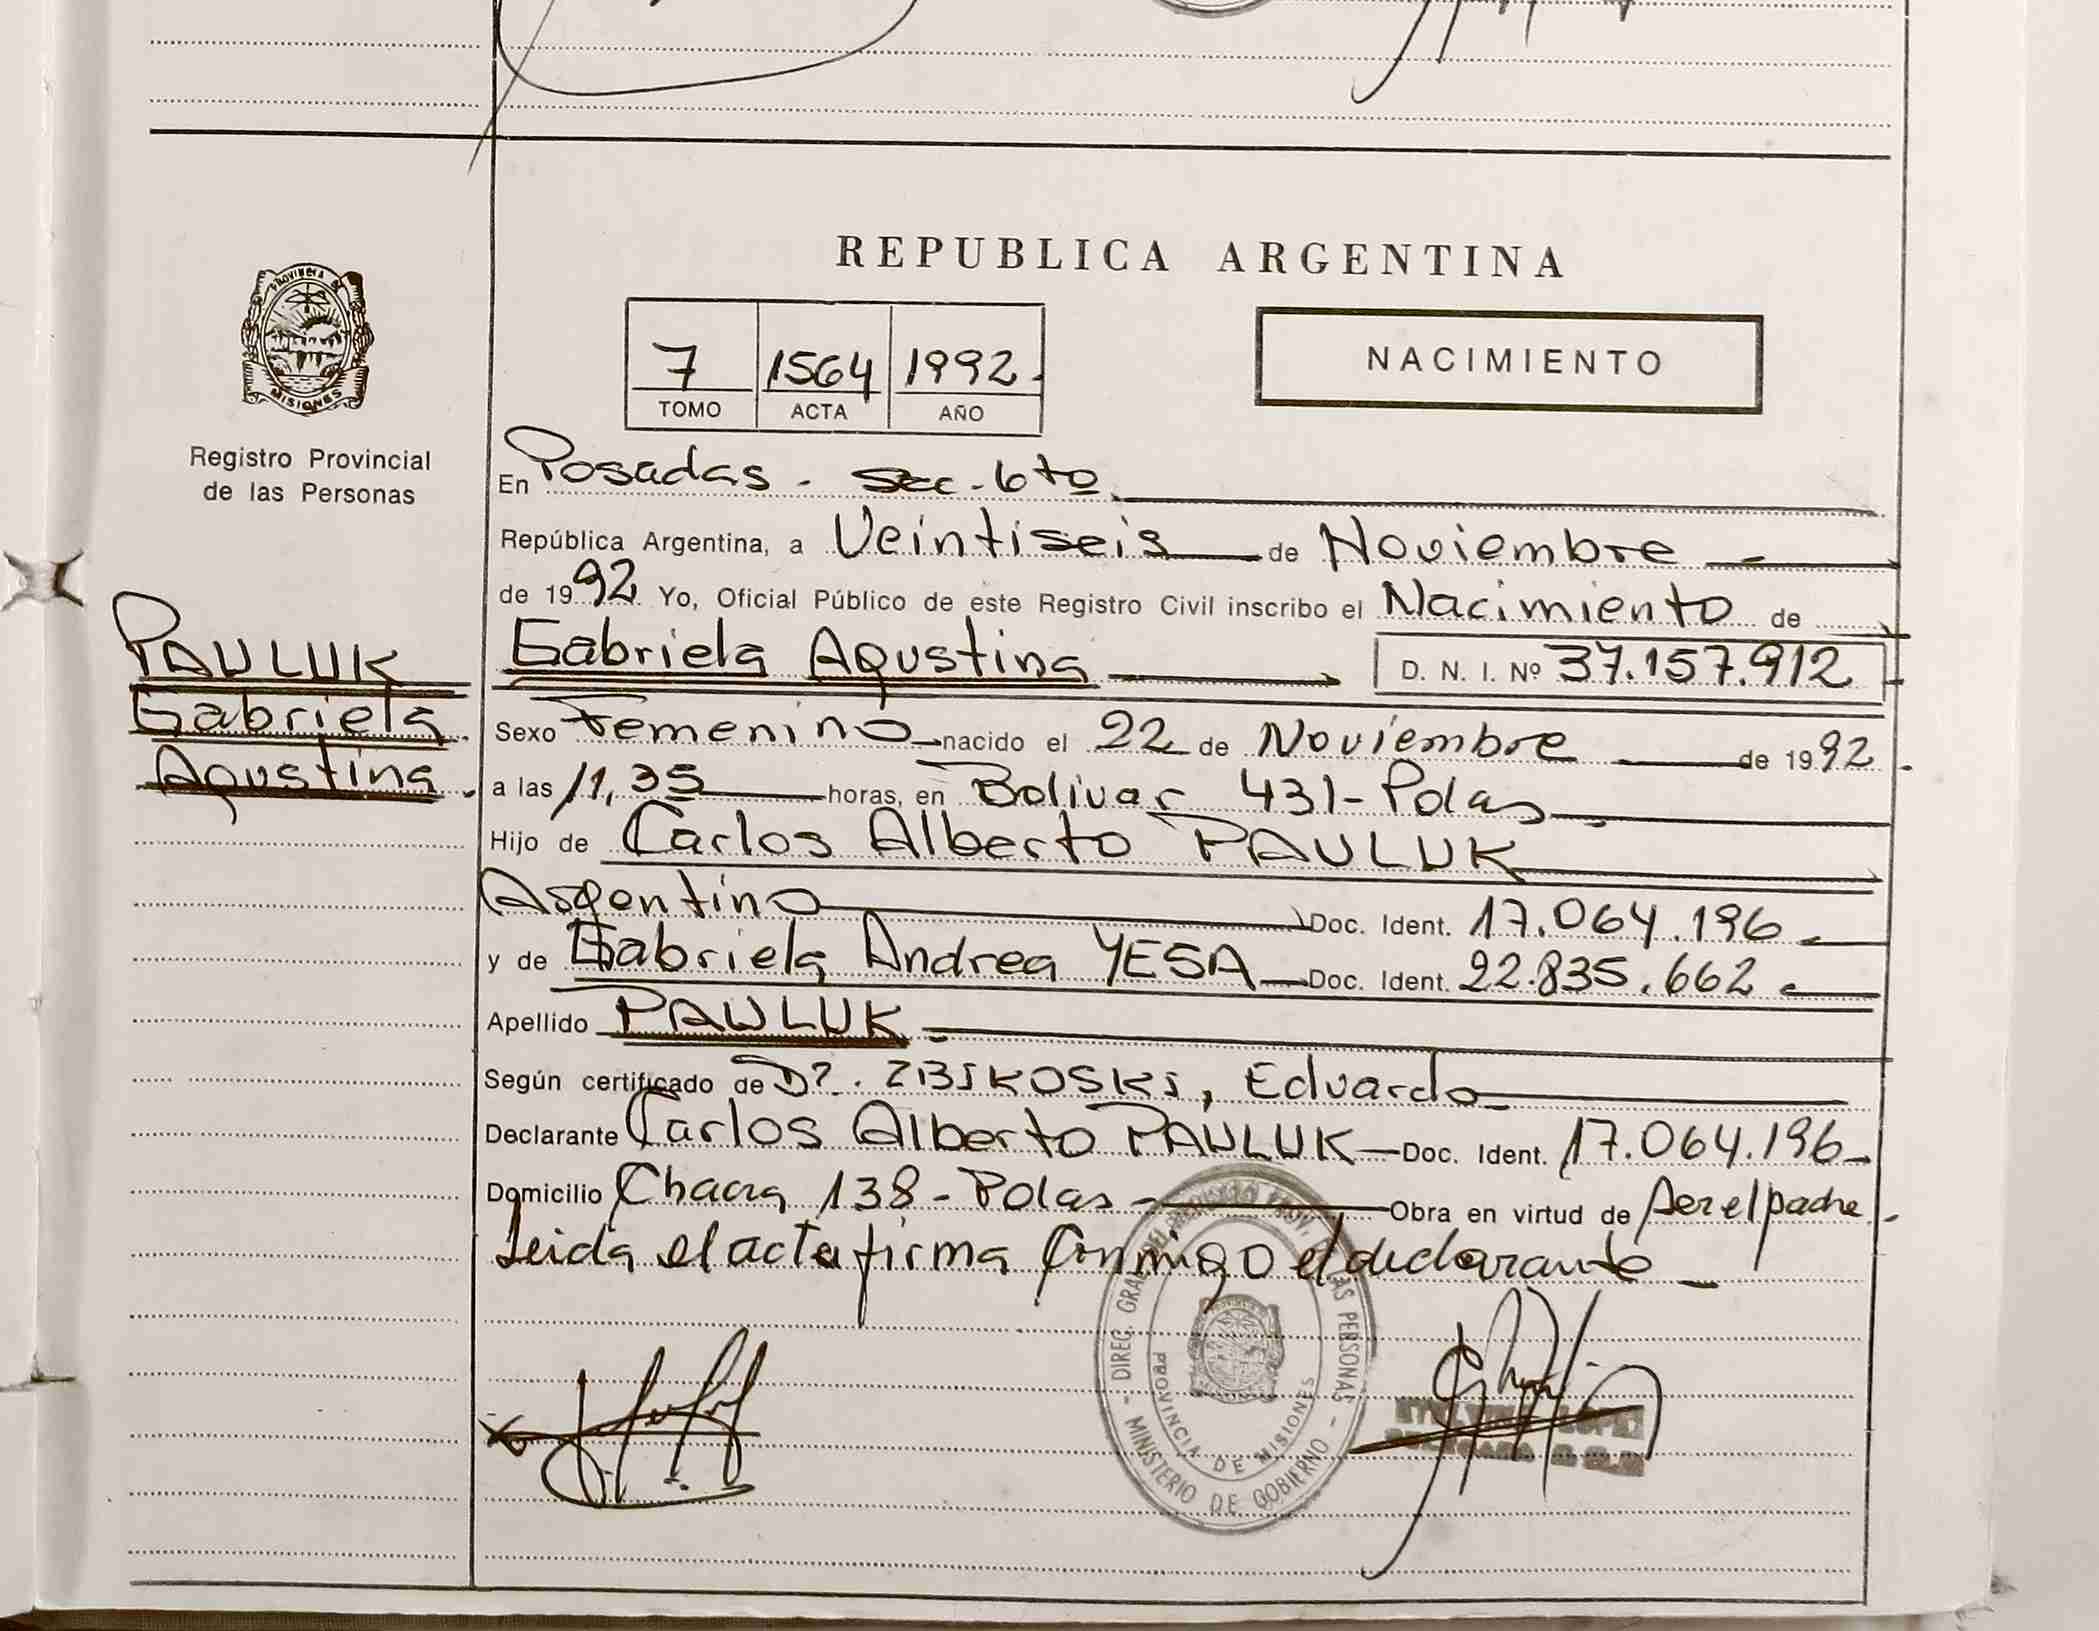 REPUBLICA ARGENTINA
PROVINCIA DE
MISIONES
Registro Provincial
de las Personas
7 1564 1992
TOMO ACTA AÑO
NACIMIENTO
En Posadas. Sec. 6to
República Argentina, a Veintiseis de Noviembre
de 1992 Yo, Oficial Público de este Registro Civil inscribo el Nacimiento de
PAULUK
Gabriela
Agustina
Gabriela Agustina D. N. I. Nº 37.157.912
Sexo Femenino nacido el 22 de Noviembre de 1992
a las 11,35 horas, en Bolivar 431-Pdas
Hijo de Carlos Alberto PAULUK
Argentino Doc. Ident. 17.064.196
y de Gabriela Andrea YESA Doc. Ident. 22.835.662
Apellido PAULUK
Según certificado de Dr. ZBIKOSKI, Eduardo
Declarante Carlos Alberto PAULUK Doc. Ident. 17.064.196
Domicilio Chacra 138 - Pdas - Obra en virtud de ser el padre
Leida el acta firma conmigo el declarante
DIREC. GRAL. DEL REGISTRO PROV. DE LAS PERSONAS
MINISTERIO DE GOBIERNO
PROVINCIA DE MISIONES